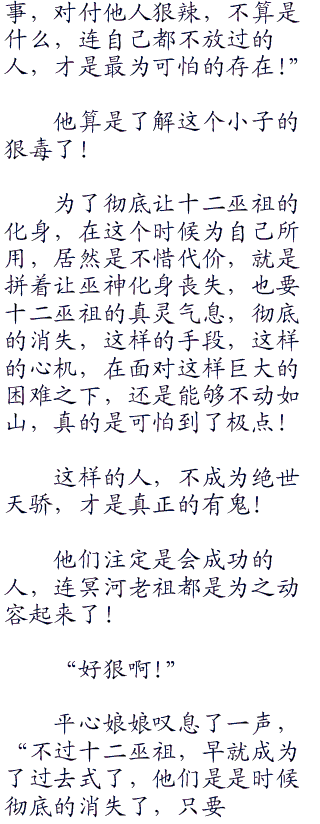 事，对付他人狠辣，不算是
什么，连自己都不放过的
人，才是最为可怕的存在！”
他算是了解这个小子的
狠毒了！
为了彻底让十二巫祖的
化身，在这个时候为自己所
用，居然是不惜代价，就是
拼着让巫神化身丧失，也要
十二巫祖的真灵气息，彻底
的消失，这样的手段，这样
的心机，在面对这样巨大的
困难之下，还是能够不动如
山，真的是可怕到了极点！
这样的人，不成为绝世
天骄，才是真正的有鬼！
他们注定是会成功的
人，连冥河老祖都是为之动
容起来了！
“好狠啊！”
平心娘娘叹息了一声，
“不过十二巫祖，早就成为
了过去式了，他们是是时候
彻底的消失了，只要